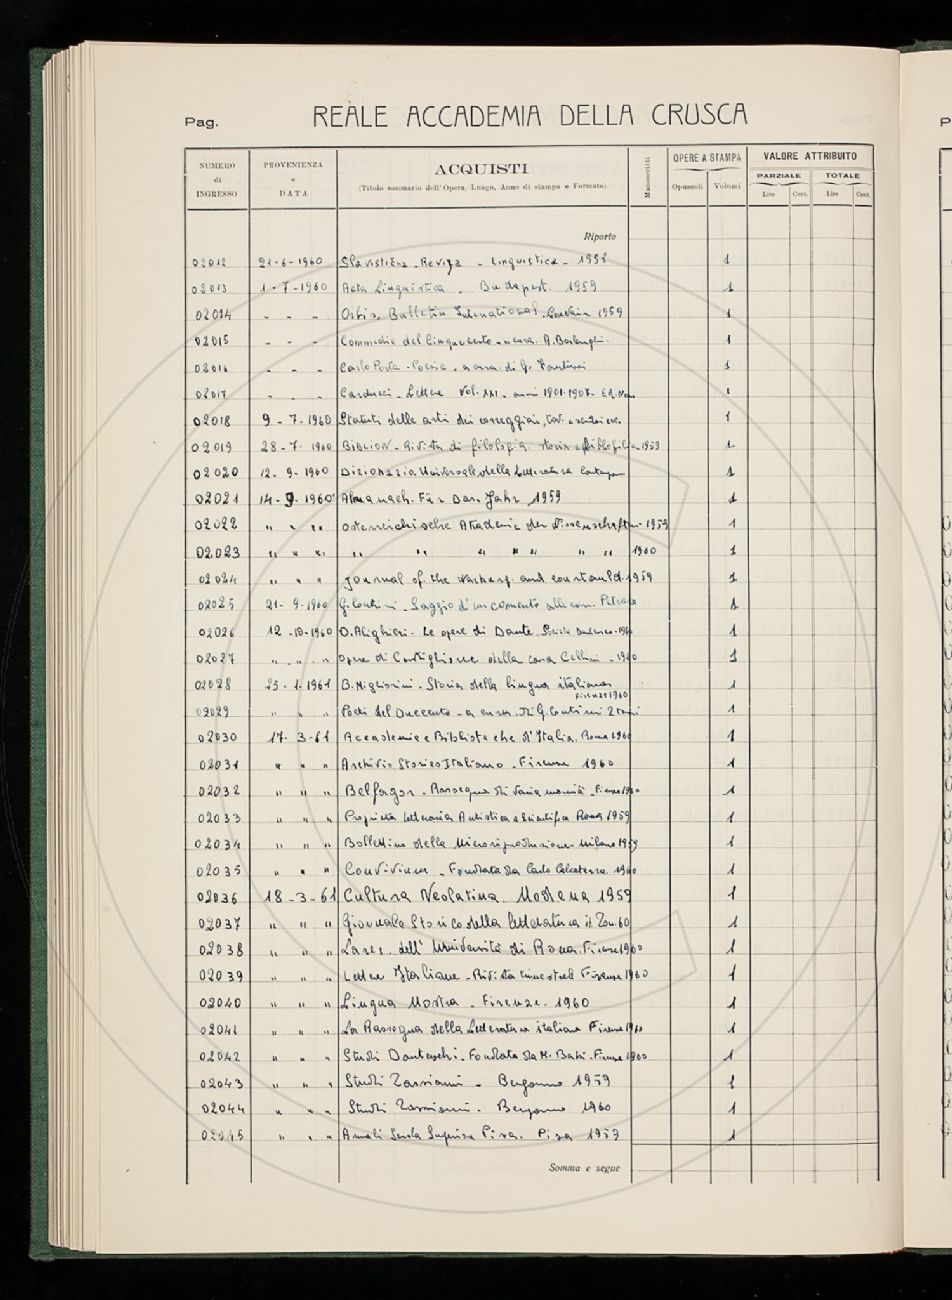 Pag.
REALE ACCADEMIA DELLA CRUSCA
NUMERO di INGRESSO
PROVENIENZA e DATA
ACQUISTI
(Titolo sommario dell'Opera, Luogo, Anno di stampa e Formato)
Manoscritti
OPERE A STAMPA
Opuscoli Volumi
VALORE ATTRIBUITO
PARZIALE TOTALE
Lire Cent. Lire Cent.
Riporto
02012 21-6-1960 Slavistična Revija - Linguistica - 1958 1
02013 1-7-1960 Acta Linguistica - Budapest. 1959 1
02014 - - - Orbis, Bulletin International. Louvain 1959 1
02015 - - - Commedie del Cinquecento - a cura A. Borlenghi. 1
02016 - - - Carlo Porta - Poesie - a cura di G. 1
02017 - - - Carducci - Lettere Vol. XXI - anni 1901-1907- Ed. Naz. 1
02018 9-7-1960 Statuti delle arti dei correggiai, tav. e scudai ecc. 1
02019 28-7-1960 BIBLION - Rivista di filologia, storia e bibliofilia 1959 1
02020 12-9-1960 Dizionario Universale della Letteratura Contemp. 1
02021 14-9-1960 Almanach. Für Das. Jahr 1959 1
02022 " " " Österreichische Akademie der Wissenschaften - 1959 1
02023 " " " " " " " " " " 1960 1
02024 " " " Journal of the Warburg and Courtauld. 1959 1
02025 21-9-1960 G. Contini - Saggio d'un comento alle corr. Petrar. 1
02026 12-10-1960 D. Alighieri - Le opere di Dante. Società Dantesca - 1960 1
02027 " " " Opere di Castiglione della casa Cellini - 1960 1
02028 25-1-1961 B. Migliorini - Storia della lingua italiana 1
Firenze 1960
02029 " " " Poeti del Duecento - a cura di G. Contini 2 tomi 1
02030 17-3-61 Accademie e Biblioteche d'Italia. Roma 1960 1
02031 " " " Archivio Storico Italiano - Firenze 1960 1
02032 " " " Belfagor - Rassegna di varia umanità - Firenze 1960 1
02033 " " " Proprietà letteraria Artistica e Scientifica Roma 1959 1
02034 " " " Bollettino della Microriproduzione - Milano 1959 1
02035 " " " Convivium - Fondata da Carlo Calcaterra. 1960 1
02036 18-3-61 Cultura Neolatina. Modena 1959 1
02037 " " " Giornale Storico della letteratura it. Tor. 60 1
02038 " " " Lares. dell' Università di Roma. Firenze 1960 1
02039 " " " Lettere Italiane - Rivista trimestrale Firenze 1960 1
02040 " " " Lingua Nostra - Firenze - 1960 1
02041 " " " La Rassegna della Letteratura italiana Firenze 1960 1
02042 " " " Studi Danteschi - Fondata da M. Barbi - Firenze 1960 1
02043 " " " Studi Tassiani - Bergamo 1959 1
02044 " " " Studi Tassiani - Bergamo 1960 1
02045 " " " Annali Scuola Superiore Pisa. Pisa 1959 1
Somma e segue